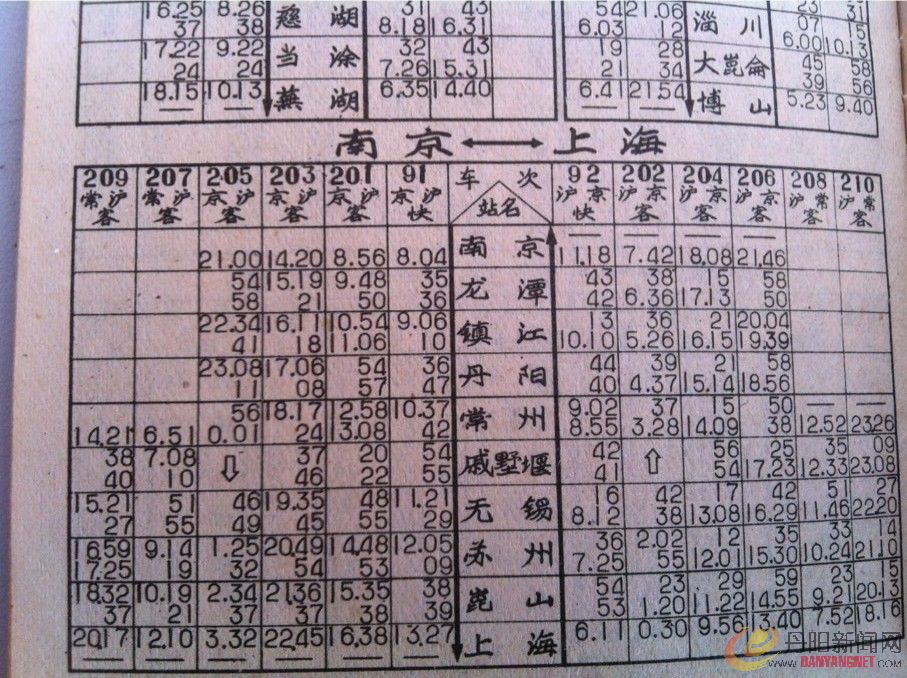 16.25 8.26 慈湖 31 43 54 21.06 淄川 23 31
37 38 8.18 16.31 6.03 12 07 15
17.22 9.22 当涂 32 43 19 28 大崑崙 6.00 10.13
24 24 7.26 15.31 21 34 45 58
18.15 10.13 蕪湖 6.35 14.40 6.41 21.54 博山 39 56
— — — — 5.23 9.40
南京↔上海
209 207 205 203 201 91 车次 92 202 204 206 208 210
常沪客 常沪客 京沪客 京沪客 京沪客 京沪快 站名 沪京快 沪京客 沪京客 沪京客 沪常客 沪常客
— — — —
21.00 14.20 8.56 8.04 南京 11.18 7.42 18.08 21.46
54 15.19 9.48 35 龙潭 43 38 15 58
58 21 50 36 42 6.36 17.13 50
22.34 16.11 10.54 9.06 镇江 13 36 21 20.04
41 18 11.06 10 10.10 5.26 16.15 19.39
23.08 17.06 54 36 丹阳 44 39 21 58
11 08 57 47 40 4.37 15.14 18.56
56 18.17 12.58 10.37 常州 9.02 37 15 50 — —
14.21 6.51 0.01 24 13.08 42 8.55 3.28 14.09 38 12.52 23.26
38 7.08 ⇩ 37 20 54 戚墅堰 42 ⇧ 56 25 35 09
40 10 46 22 55 41 54 17.23 12.33 23.08
15.21 51 46 19.35 48 11.21 无锡 16 42 17 42 51 27
27 55 49 45 55 29 8.12 38 13.08 16.29 11.46 22.20
16.59 9.14 1.25 20.49 14.48 12.05 苏州 36 2.02 12 35 33 14
17.25 19 32 54 53 09 7.25 55 12.01 15.30 10.24 21.10
18.32 10.19 2.34 21.36 15.35 38 崑山 54 23 29 59 23 15
37 21 37 37 38 39 53 1.20 11.22 14.55 9.21 20.13
20.17 12.10 3.32 22.45 16.38 13.27 上海 6.11 0.30 9.56 13.40 7.52 18.16
— — — — — —
丹阳新闻网
WWW.DANYANGNET.COM